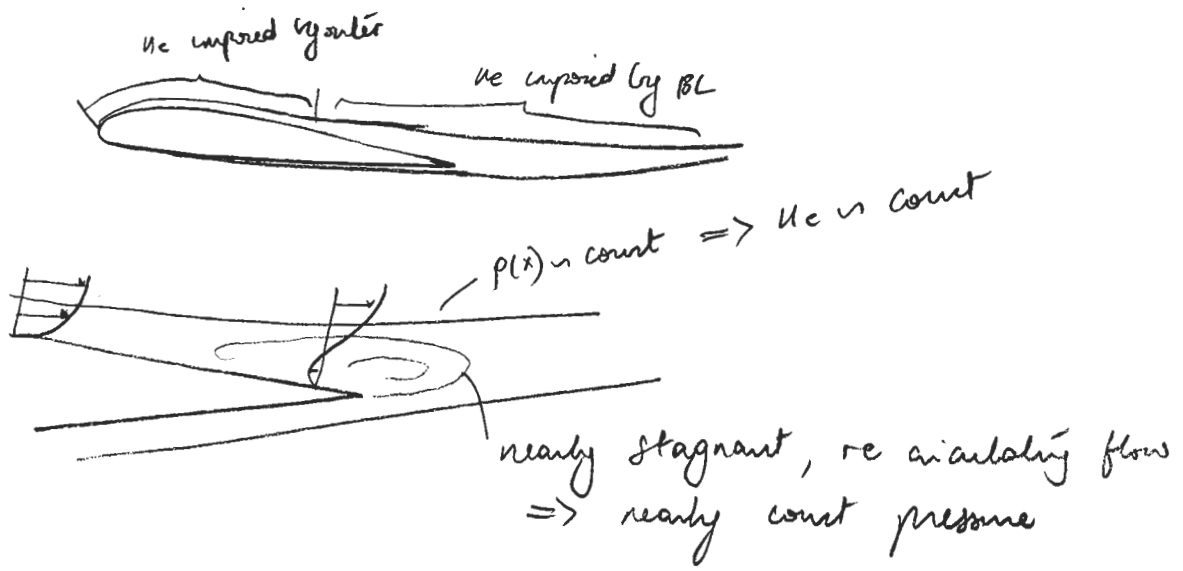 ue imposed by outer
ue imposed by BL
p(x) ~ const => ue ~ const
nearly stagnant, re circulating flow
=> nearly const pressure